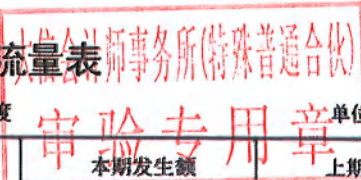 流量表
大信会计师事务所(特殊普通合伙)
度
单位
审验专用章
本期发生额
上期